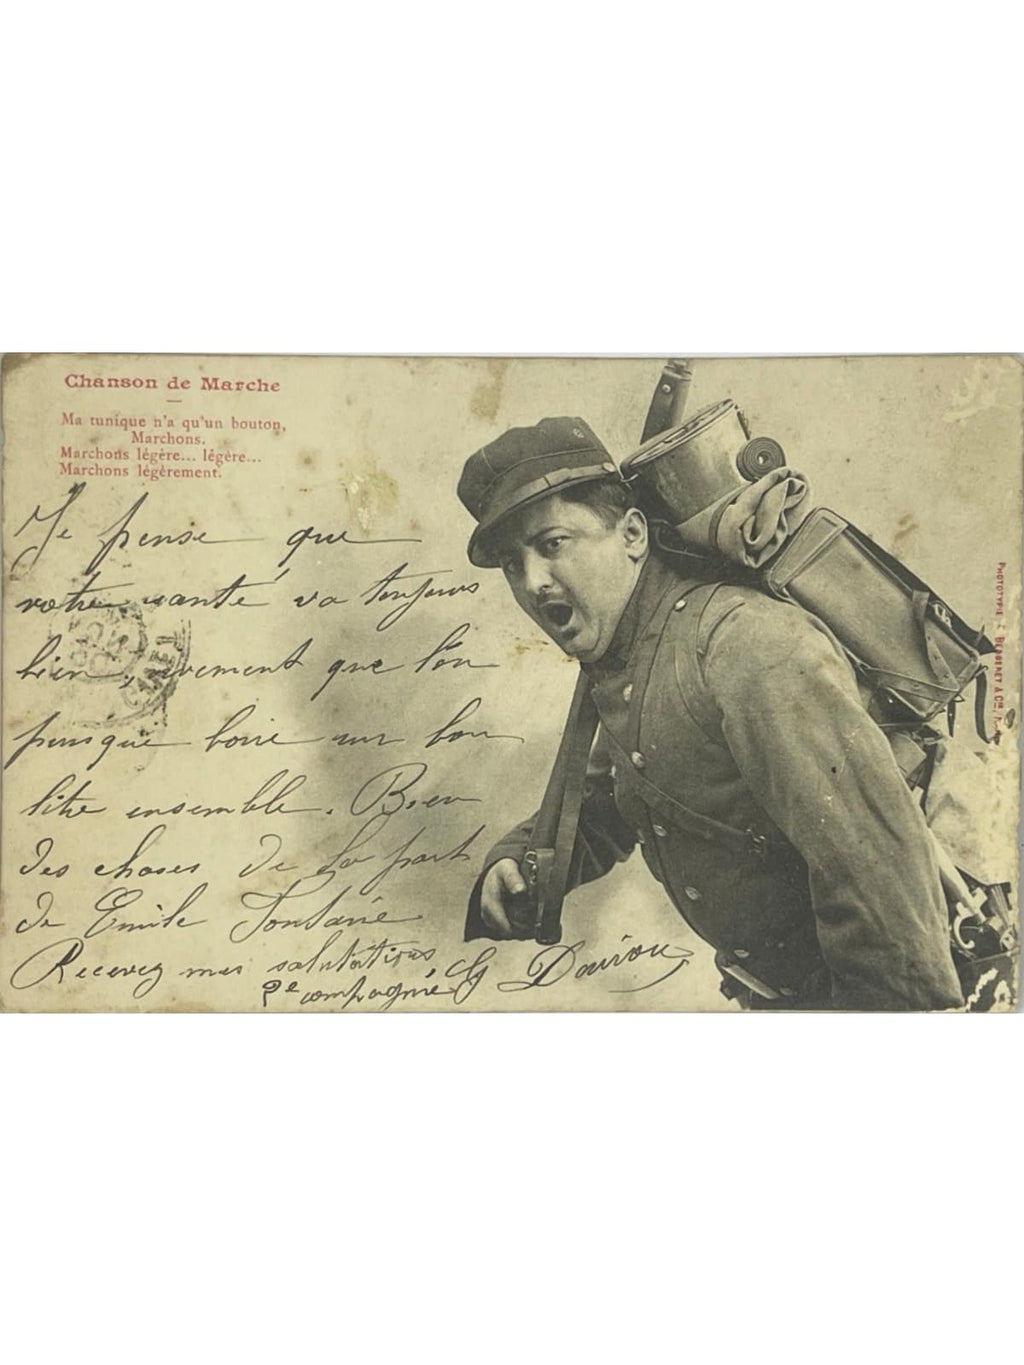 Chanson de Marche
Ma tunique n'a qu'un bouton,
Marchons.
Marchons légère... légère...
Marchons légèrement.
Je pense que
votre santé va toujours
bien, vement que l'on
puisque boire un bon
litre ensemble. Bien
des choses de la part
de Emile
Recevez mes salutations
2e compagnie
PHOTOTYPIE BERGERET & Cie,